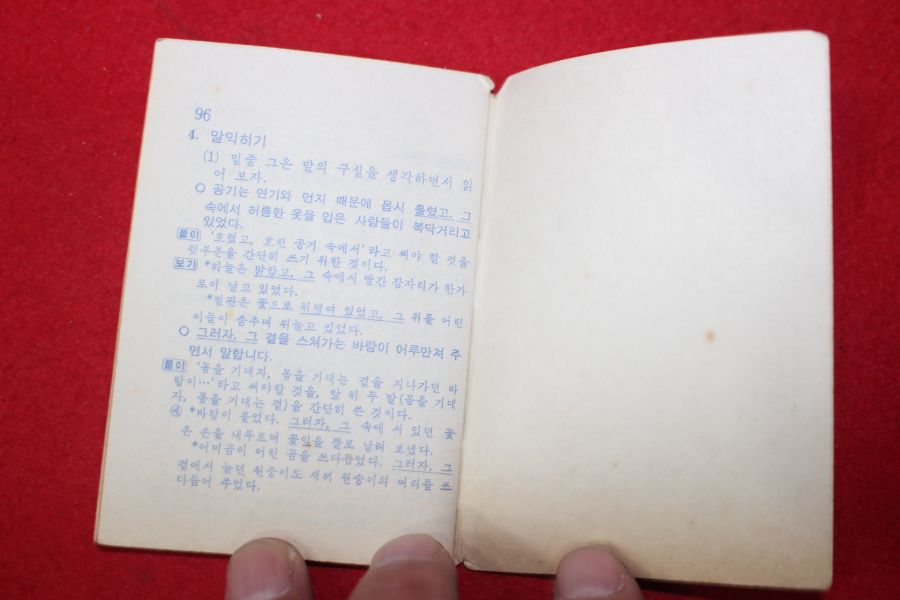 96
4. 말익히기
(1) 밑줄 그은 말의 구실을 생각하면서 읽
어 보자.
○ 공기는 연기와 먼지 때문에 몹시 흐렸고, 그
속에서 허름한 옷을 입은 사람들이 복닥거리고
있었다.
풀이 '흐렸고, 흐린 공기 속에서'라고 써야 할 것을
뒷부분을 간단히 쓰기 위한 것이다.
보기 *하늘은 맑았고, 그 속에서 빨간 잠자리가 한가
로이 날고 있었다.
*벌판은 꽃으로 뒤덮여 있었고, 그 위를 어린
이들이 춤추며 뛰놀고 있었다.
○ 그러자, 그 곁을 스쳐가는 바람이 어루만져 주
면서 말합니다.
풀이 '몸을 기대자, 몸을 기대는 곁을 지나가던 바
람이…'라고 써야할 것을, 앞 뒤 두 말(몸을 기대
자, 몸을 기대는 곁)을 간단히 쓴 것이다.
예 *바람이 불었다. 그러자, 그 속에 서 있던 꽃
은 손을 내두르며 꽃잎을 들로 날려 보냈다.
*어미곰이 어린 곰을 쓰다듬었다. 그러자, 그
곁에서 놀던 원숭이도 새끼 원숭이의 머리를 쓰
다듬어 주었다.